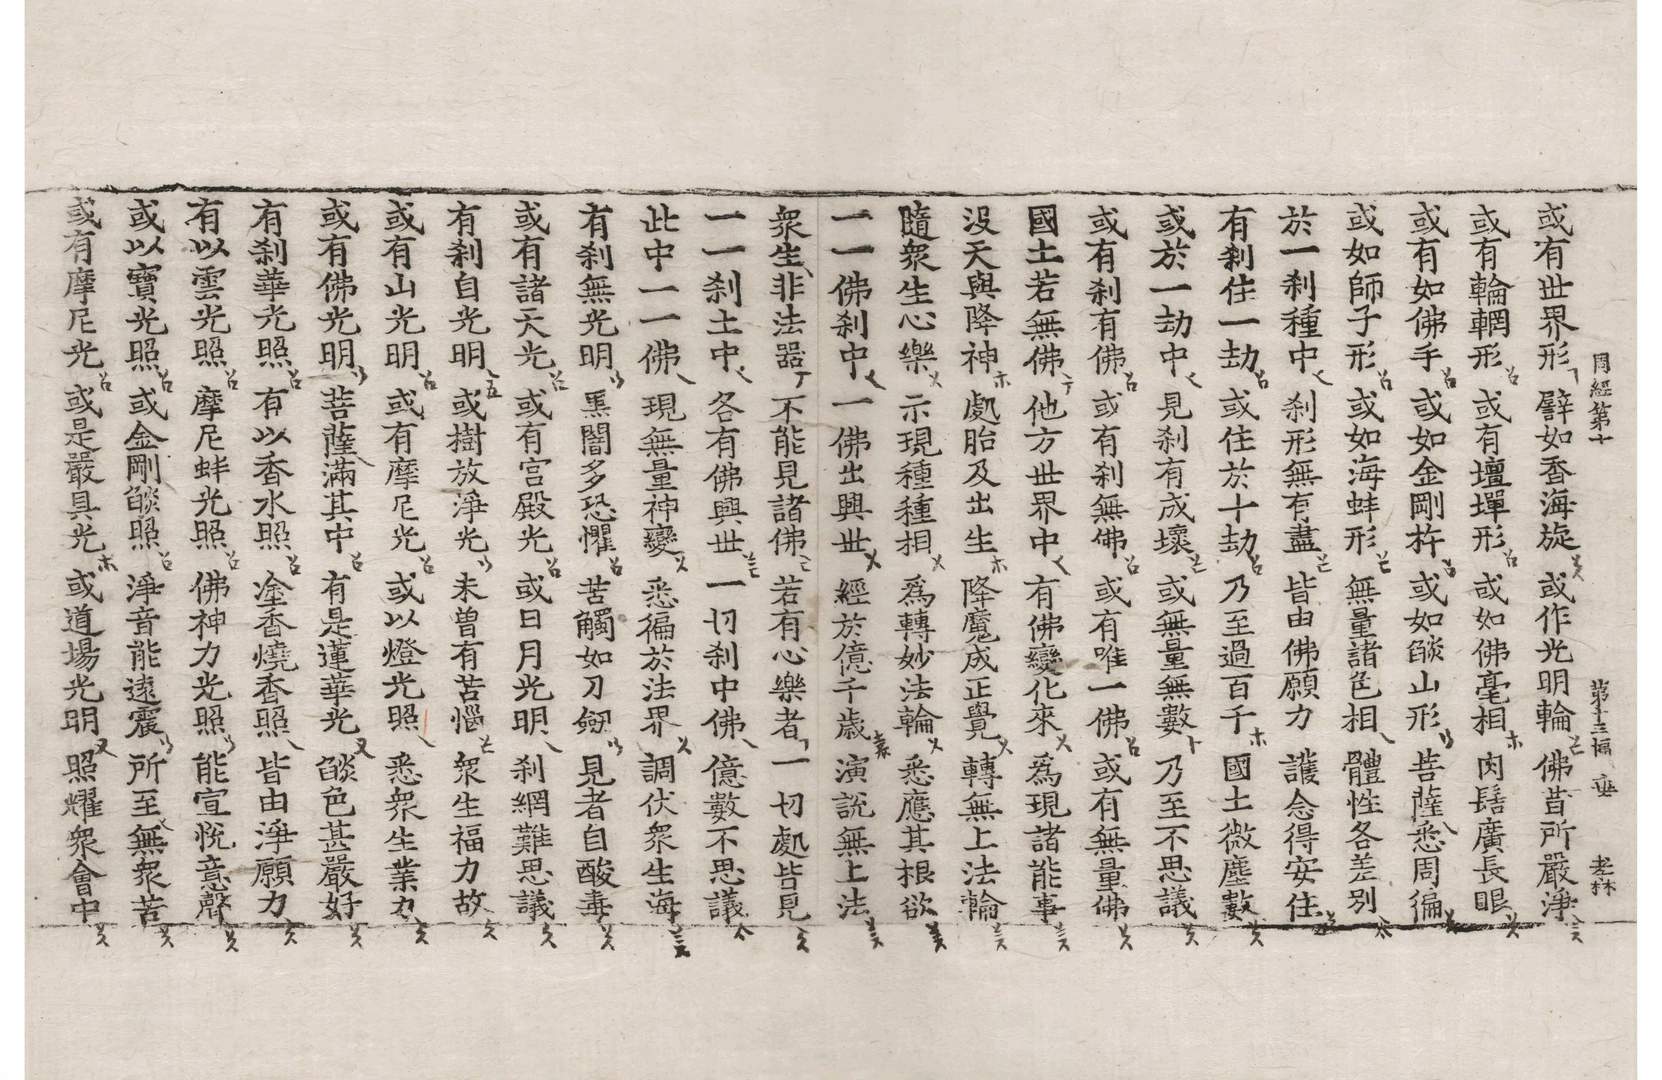 周經第十 第十三幅 垂
或有世界形 譬如香海旋 或作光明輪 佛昔所嚴淨
或有輪輞形 或有壇墠形 或如佛毫相 肉髻廣長眼
或有如佛手 或如金剛杵 或如㷔山形 菩薩悉周徧
或如師子形 或如海蚌形 無量諸色相 體性各差別
於一刹種中 刹形無有盡 皆由佛願力 護念得安住
有刹住一劫 或住於十劫 乃至過百千 國土微塵數
或於一劫中 見刹有成壞 或無量無數 乃至不思議
或有刹有佛 或有刹無佛 或有唯一佛 或有無量佛
國土若無佛 他方世界中 有佛變化來 爲現諸能事
沒天與降神 處胎及出生 降魔成正覺 轉無上法輪
隨衆生心樂 示現種種相 爲轉妙法輪 悉應其根欲
一一佛刹中 一佛出興世 經於億千歲 演說無上法
衆生非法器 不能見諸佛 若有心樂者 一切處皆見
一一刹土中 各有佛興世 一切刹中佛 億數不思議
此中一一佛 現無量神變 悉徧於法界 調伏衆生海
有刹無光明 黑闇多恐懼 苦觸如刀劒 見者自酸毒
或有諸天光 或有宮殿光 或日月光明 刹網難思議
有刹自光明 或樹放淨光 未曾有苦惱 衆生福力故
或有山光明 或有摩尼光 或以燈光照 悉衆生業力
或有佛光明 菩薩滿其中 有是蓮華光 㷔色甚嚴好
有刹華光照 有以香水照 塗香燒香照 皆由淨願力
有以雲光照 摩尼蚌光照 佛神力光照 能宣悅意聲
或以寶光照 或金剛㷔照 淨音能遠震 所至無衆苦
或有摩尼光 或是嚴具光 或道場光明 照耀衆會中